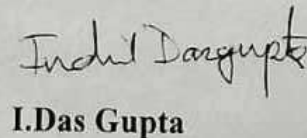 Indril Dasgupta
I.Das Gupta